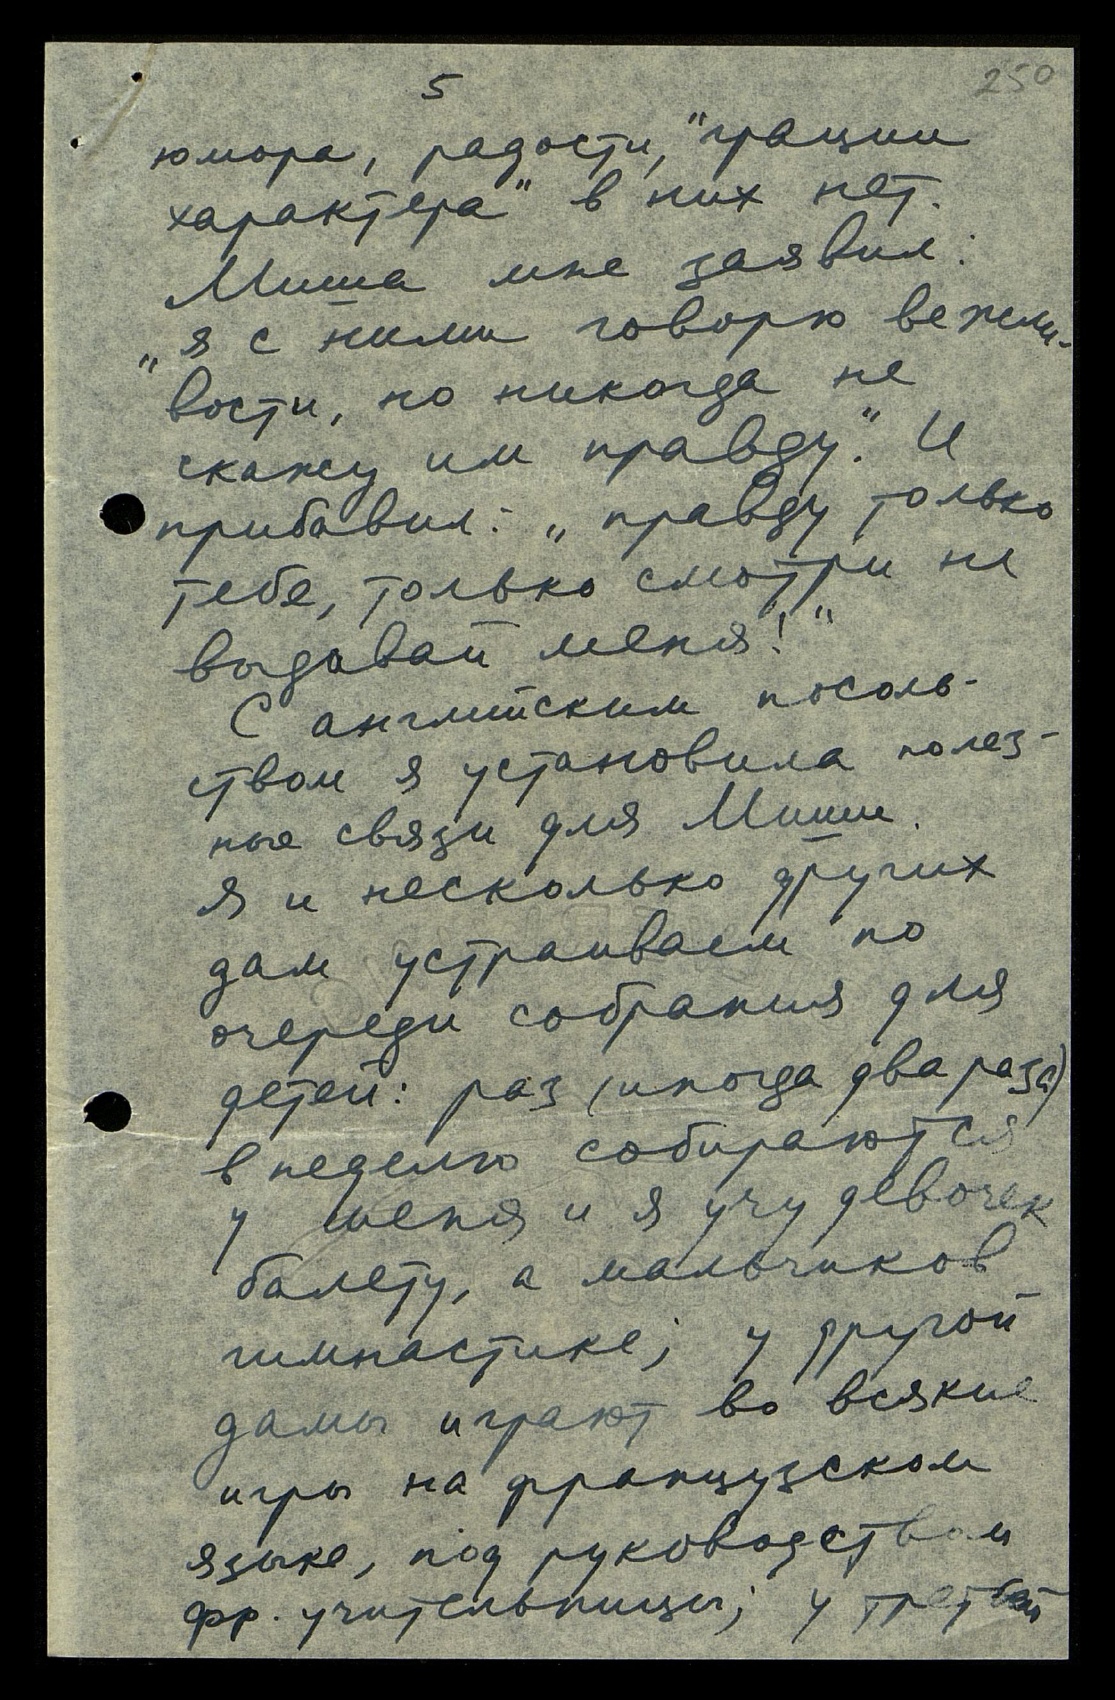 5
250
юмора, радости, "грации
характера" в них нет.
Миша мне заявил:
„я с ними говорю вежли-
вости, но никогда не
скажу им правду." И
прибавил: „правду только
тебе, только смотри не
выдавай меня!"
С английским посоль-
ством я установила полез-
ные связи для Миши.
Я и несколько других
дам устраиваем по
очереди собрания для
детей: раз (иногда два раза)
в неделю собираются
у меня и я учу девочек
балету, а мальчиков
гимнастике; у другой
дамы играют во всякие
игры на французском
языке, под руководством
фр. учительницы; у третьей